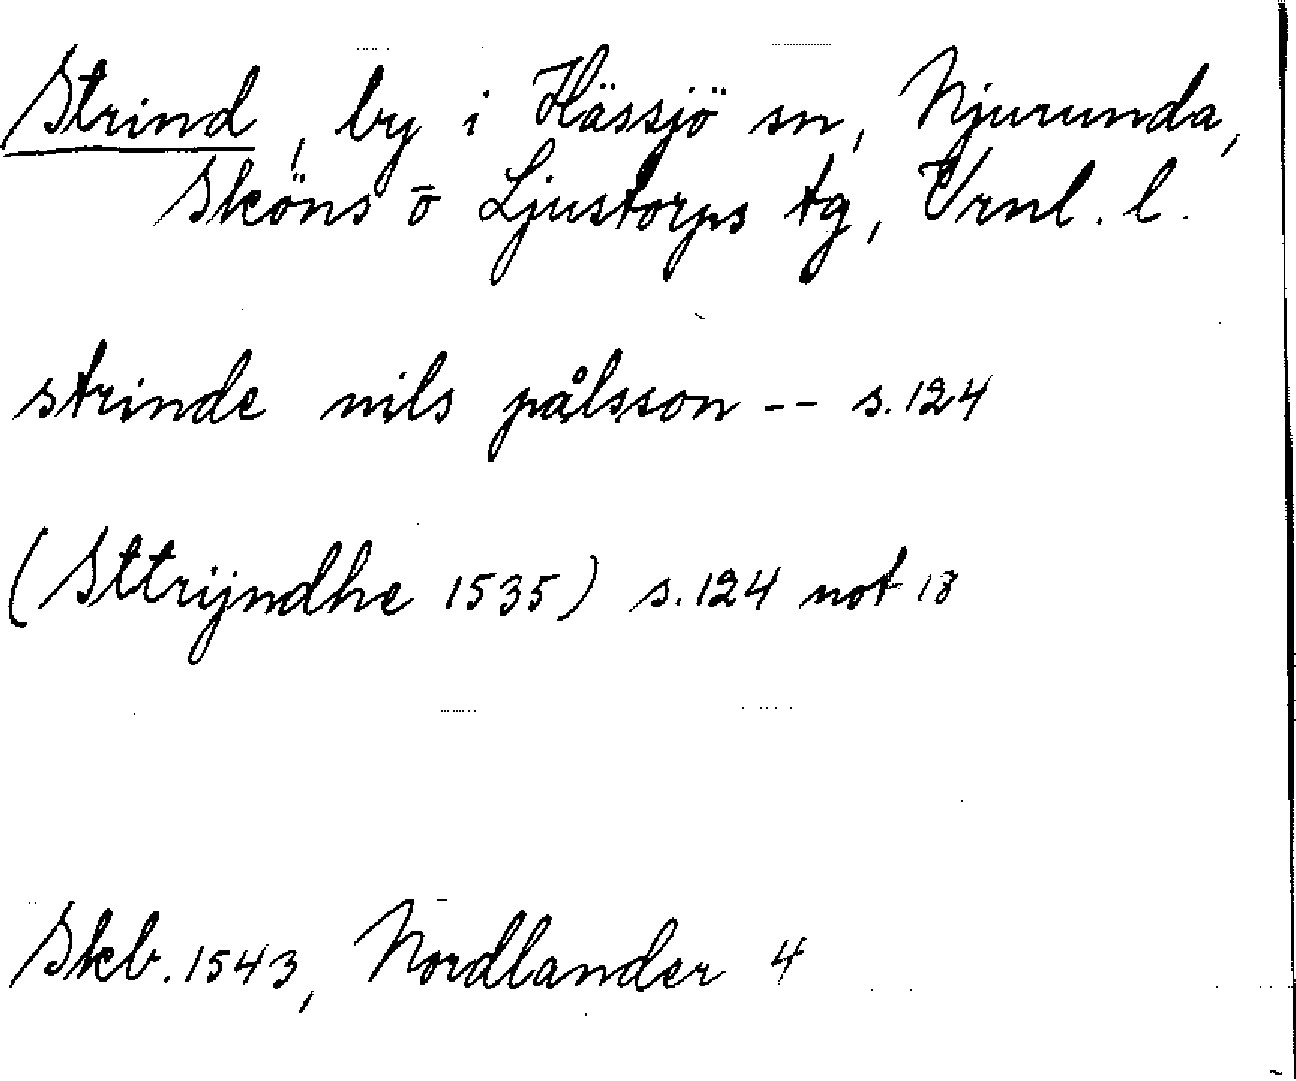 Strind, by i Hässjö sn, Njurunda,
Sköns o Ljustorps tg, Vrnl. l.
strinde nils pålsson -- s. 124
(Sttrijndhe 1535) s. 124 not 18
Skb. 1543, Nordlander 4